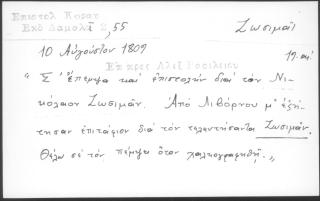 Επιστολ Κοραη
Εκδ Δαμαλᾶ 2, 55
Ζωσιμαῖ
10 Αὐγούστου 1809
19. αἰ
Επ προς Αλεξ Βασιλειου
"Σ' ἔπεμψα καὶ ἐπιστολὴν διὰ τὸν Νι-
κόλαον Ζωσιμᾶν. Ἀπὸ Λιβόρνου μ' ἐζή-
τησαν ἐπιτάφιον διὰ τὸν τελευτήσαντα Ζωσιμᾶν.
Θέλω σὲ τὸν πέμψω ὅταν χαλκογραφηθῇ."